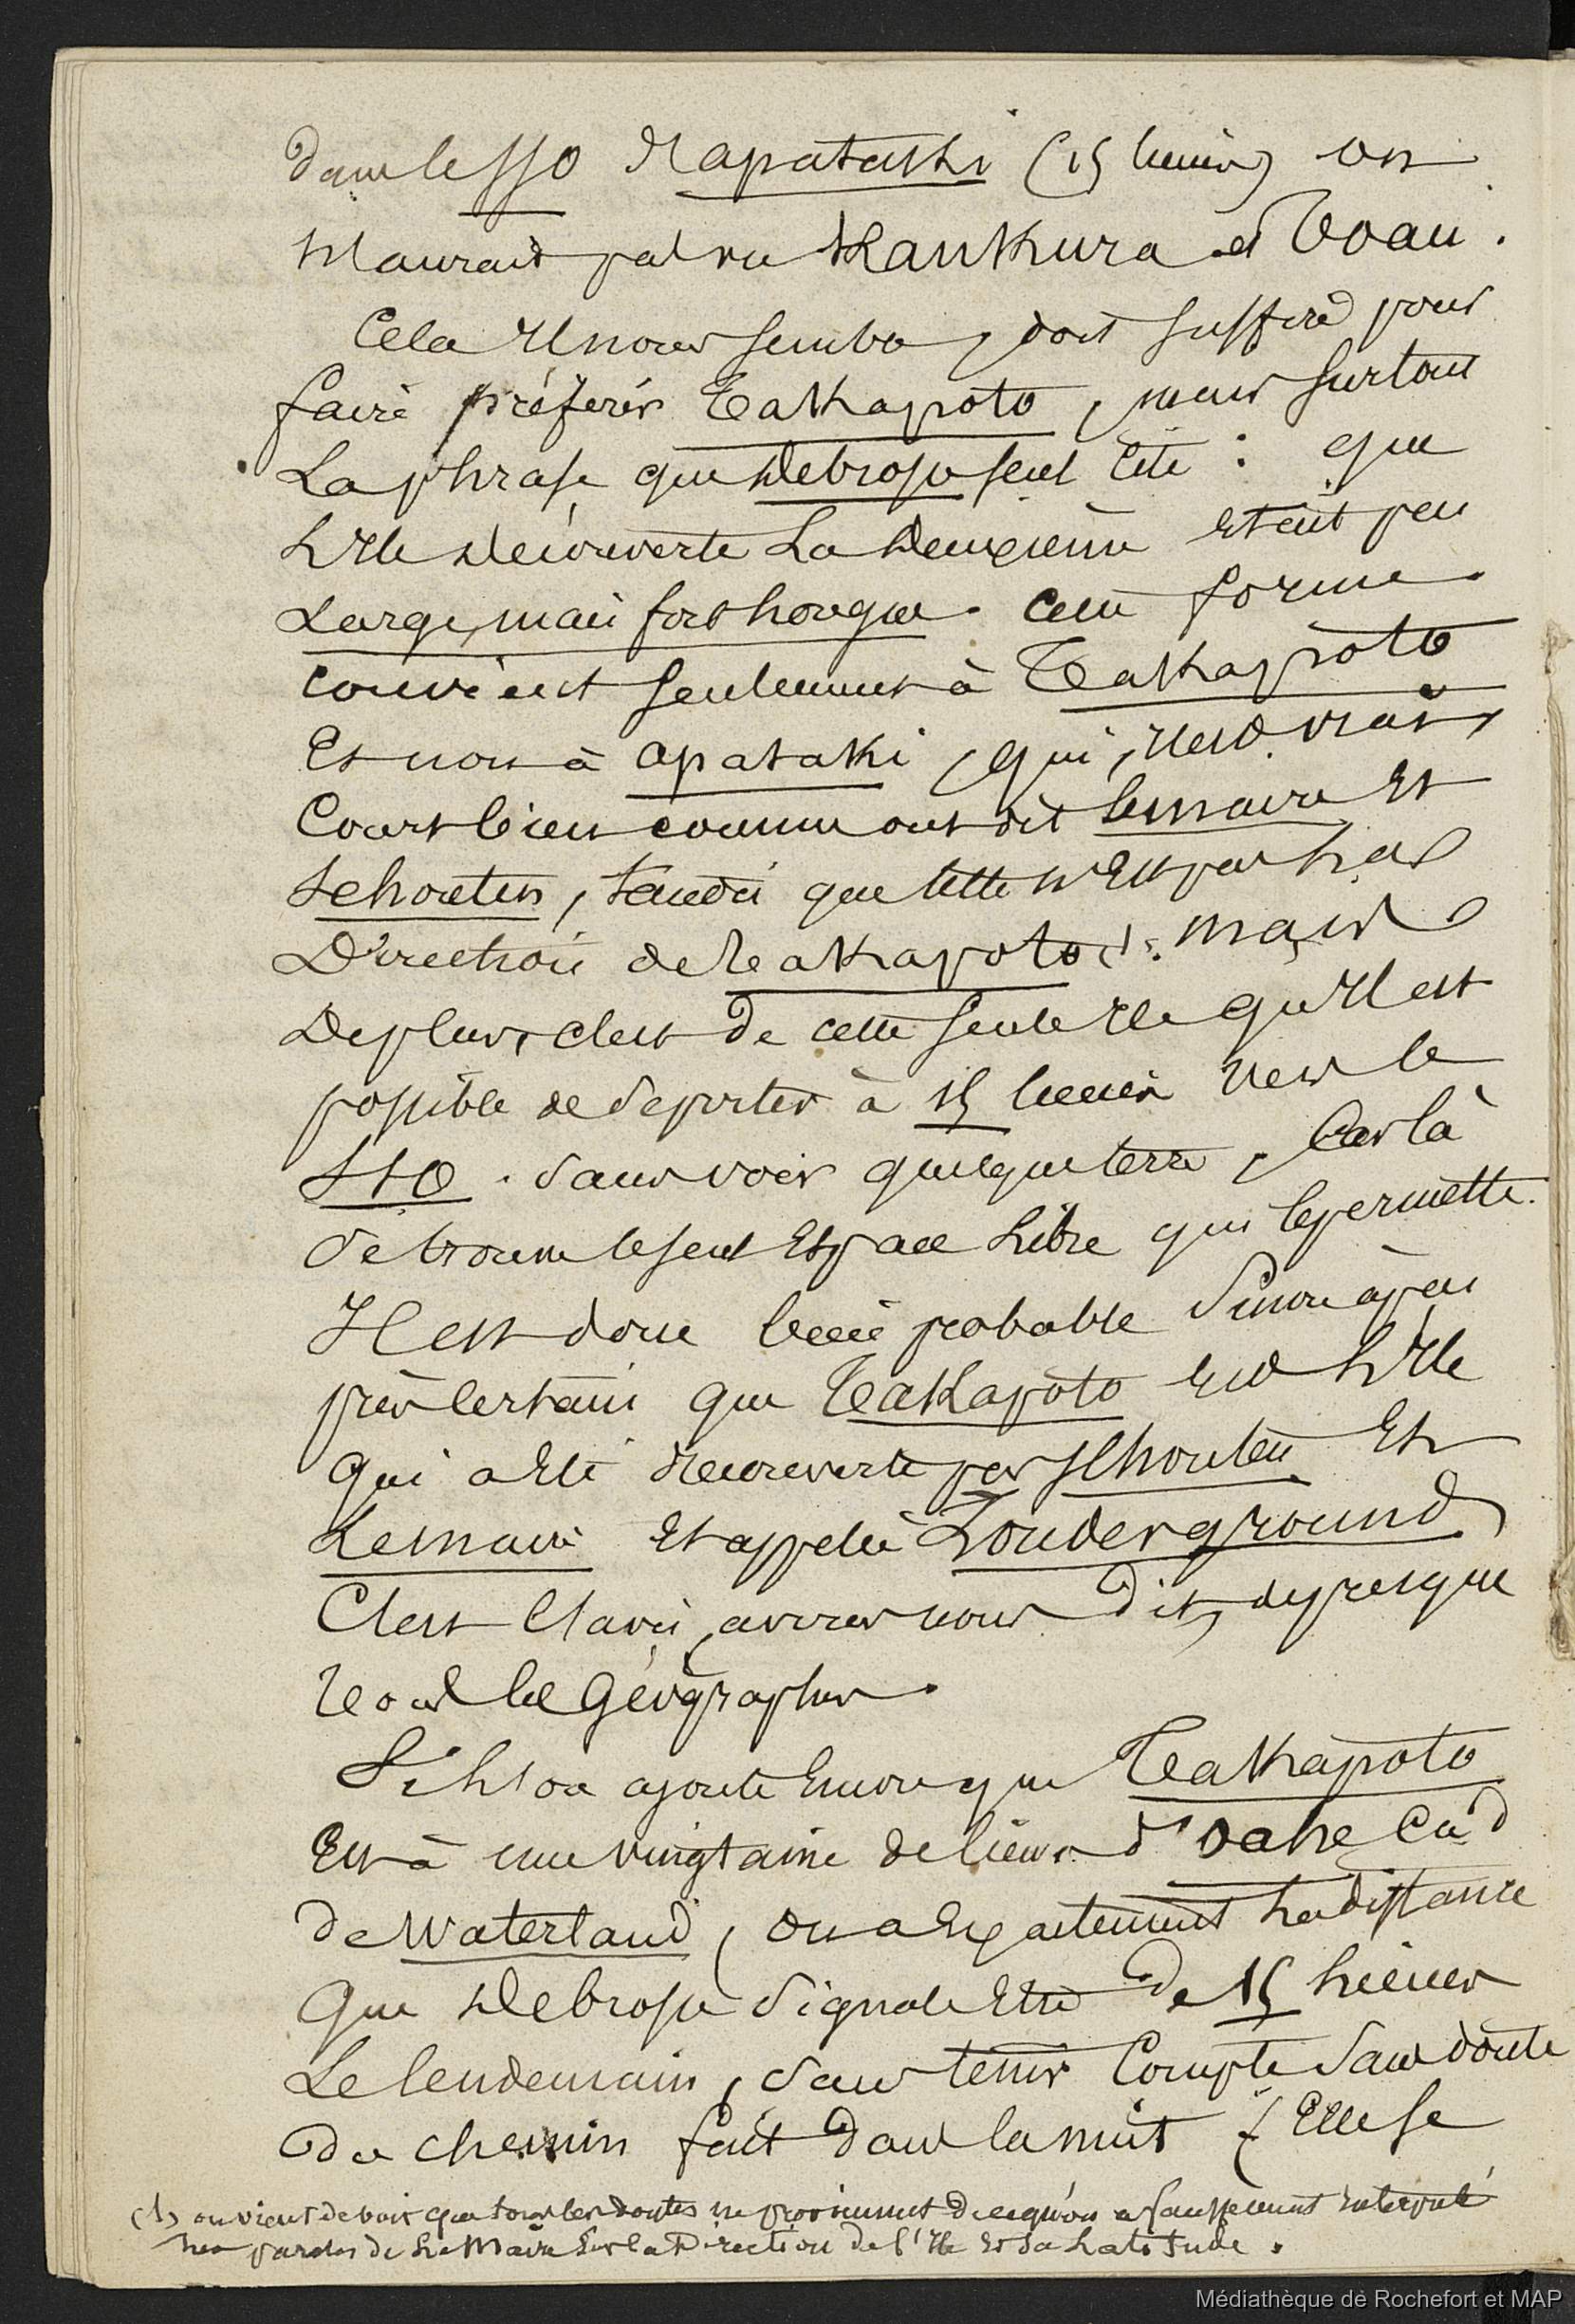 dans le SSO d'apataki (15 lieues) on
n'aurait pas vu Kaukura et Toau.
Cela il nous semble, doit suffire pour
faire préférer Takapoto, mais surtout
La phrase que Debrosse seul cite : que
L'Ile découverte La deuxième était peu
Large, mais fort Longue. Cette forme
convient seulement à Takapoto
Et non à apataki, qui, il est vrai,
Court bien comme ont dit Lemaire Et
Schouten, tandis que telle n'Est pas La
Direction de Takapoto (1). Mais
De plus, c'est de cette seule Ile qu'Il est
possible de se porter à 15 lieues vers le
SSO. sans voir quelque terre, Car là
se trouve le seul Espace Libre qui le permette.
Il est donc bien probable sinon à peu
près certain que Takapoto Est L'Ile
qui a Eté découverte par Schouten Et
Lemaire Et appelée Zonderground
C'est l'avis, avons nous dit, de presque
tous les Géographes.
Si L'on ajoute Encore que Takapoto
Est à une vingtaine de lieues d'Oahe Càd
de Waterland, on a Exactement La distance
Que Debrosse signale Etre de 15 Lieues
Le lendemain, sans tenir Compte sans doute
du chemin fait dans la nuit. Elle se
(1) on vient de voir que tous les doutes ne proviennent de ce qu'on a faussement interprété
Les paroles de Le Maire sur la Direction de l'Ile Et sa Latitude.
Médiathèque de Rochefort et MAP